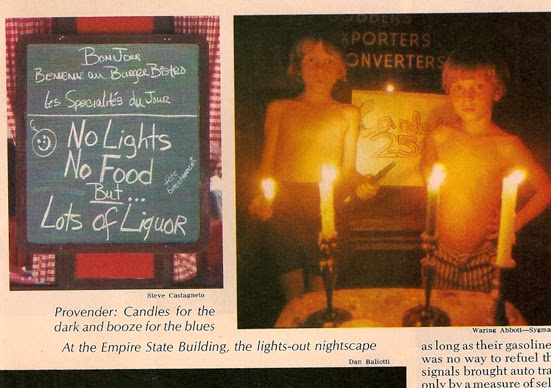 BonJour
Bienvenue au Burger Bistro
Les Specialités du Jour
No Lights
No Food
But...
Lots of Liquor
JOBBERS
EXPORTERS
CONVERTERS
Candles
25¢
Steve Castagneto
Waring Abbott—Sygma
Provender: Candles for the
dark and booze for the blues
At the Empire State Building, the lights-out nightscape
Dan Baliotti
as long as their gasoline
was no way to refuel th
signals brought auto tra
only by a measure of sel